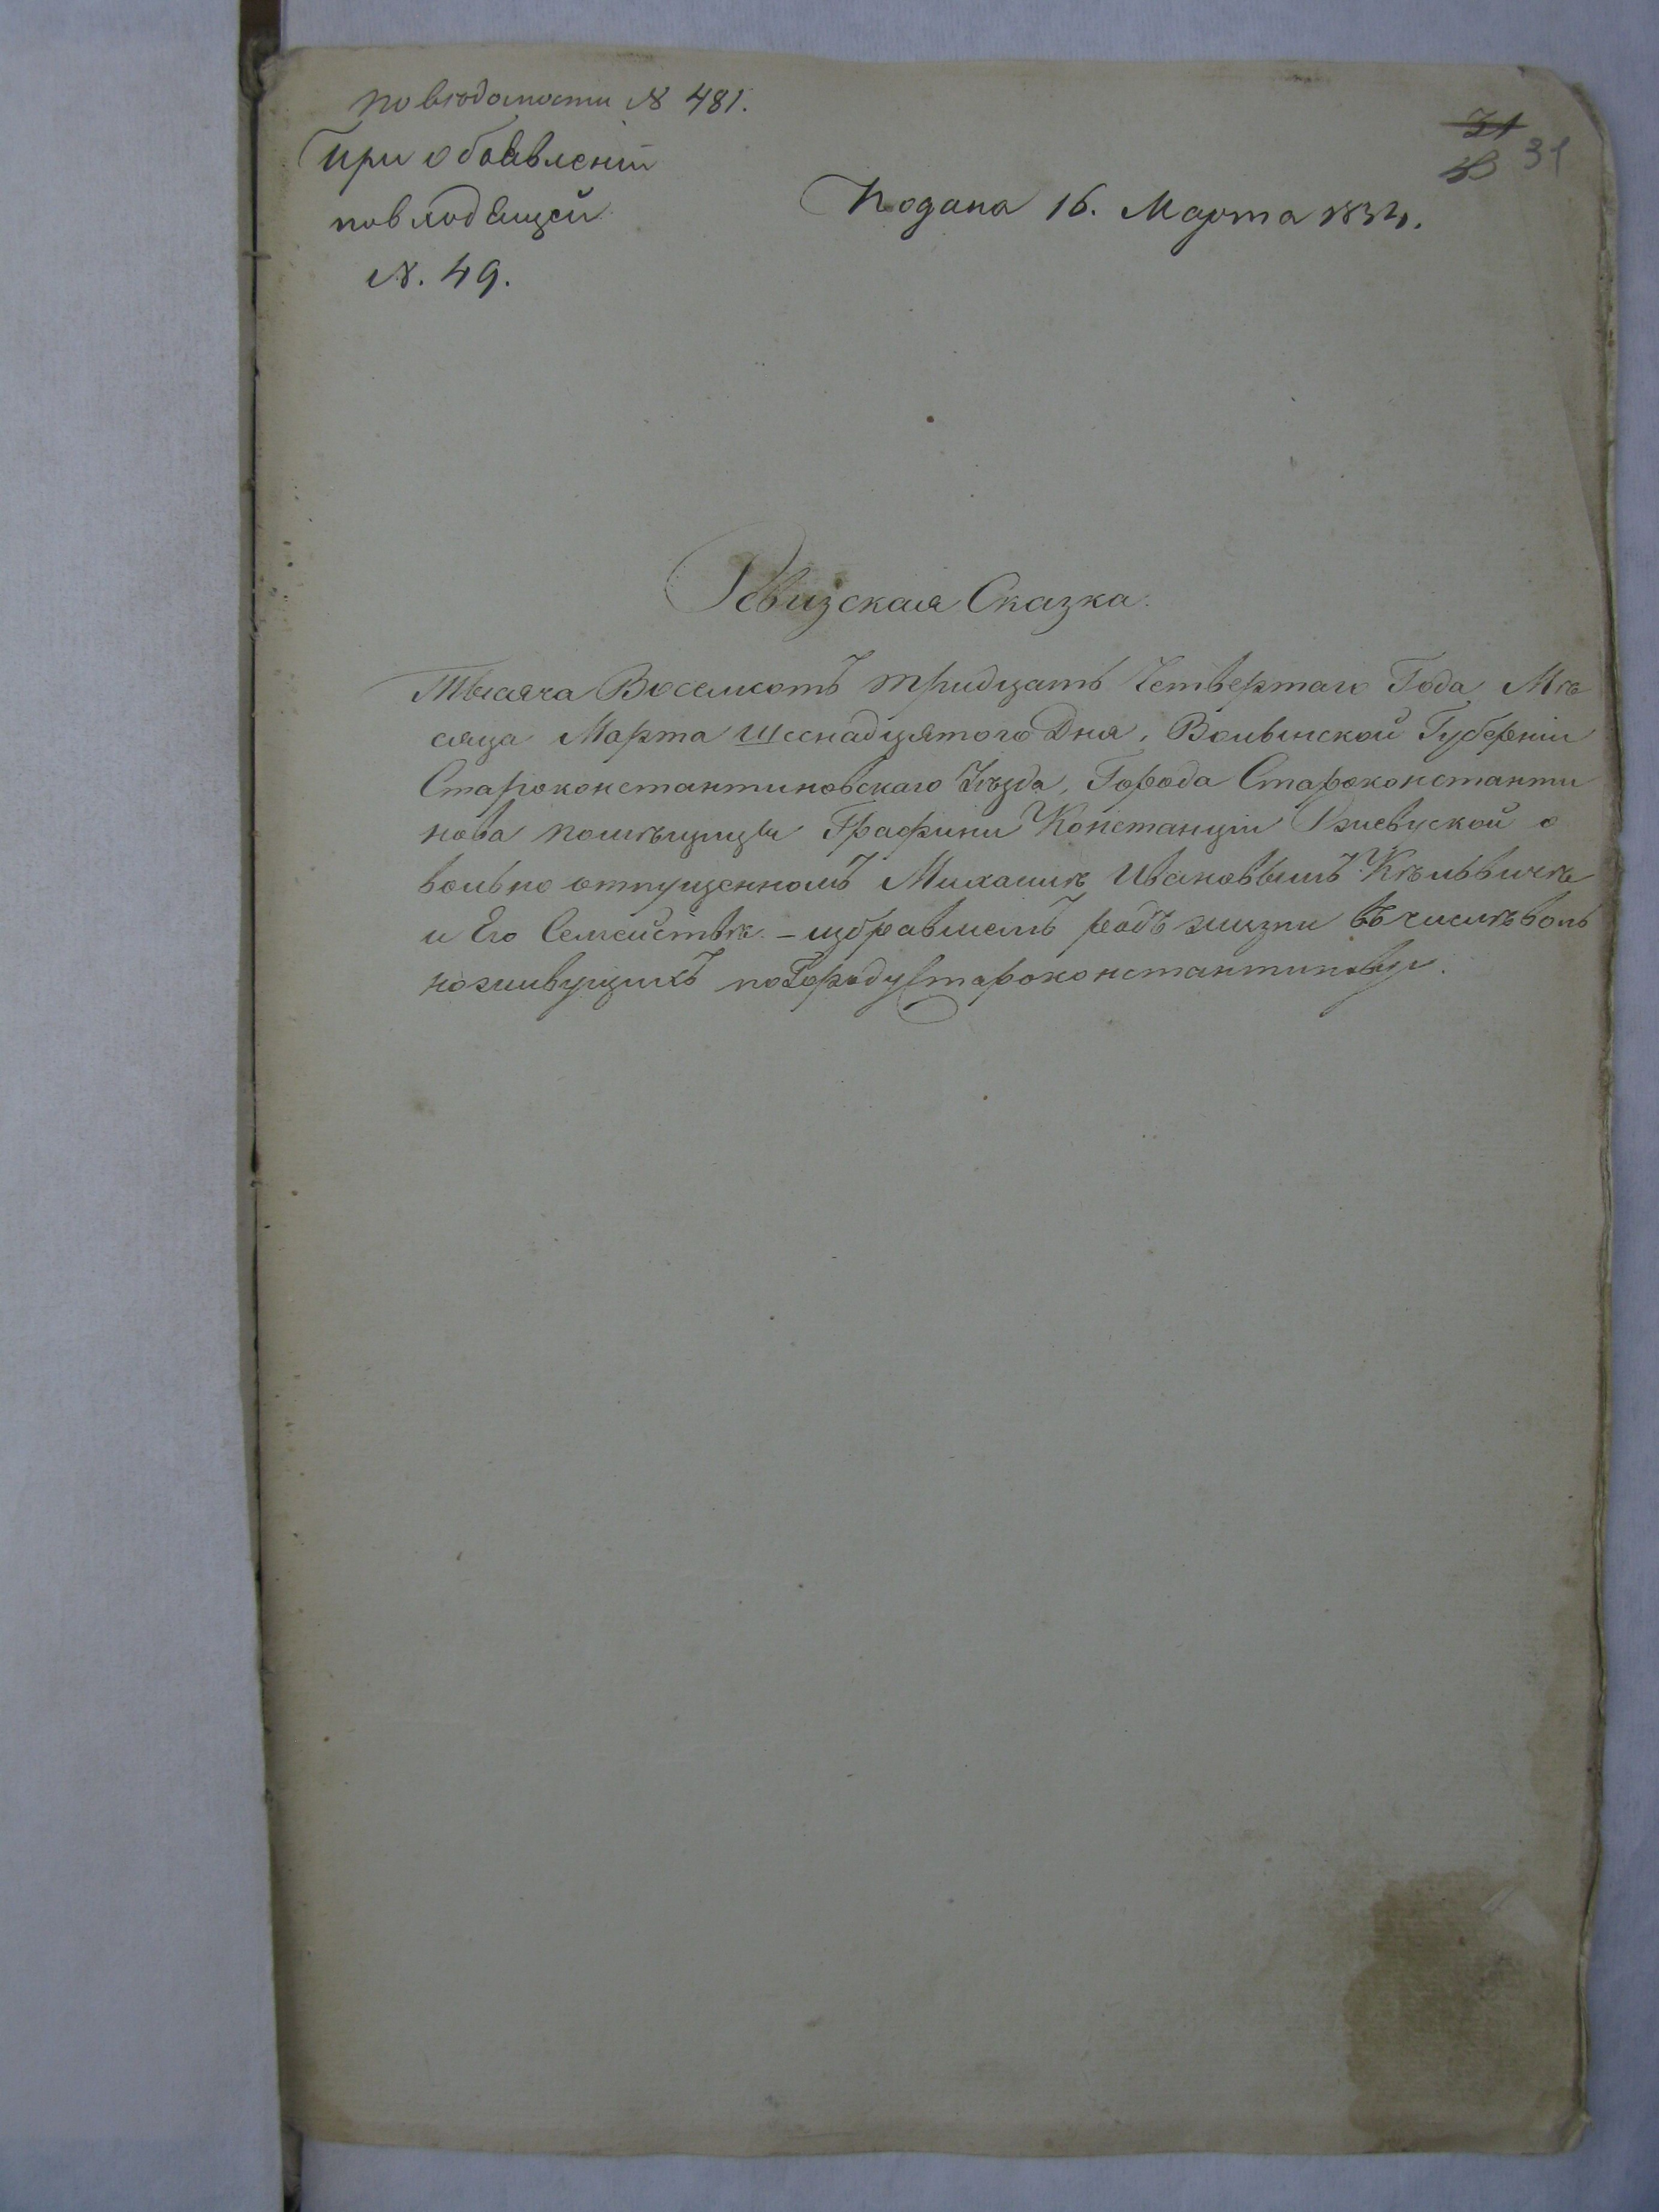 по вѣдомости № 481.
При обьявленіи
по входящей
№. 49.
31
31
Подана 16. Марта 1834.
Ревизская Сказка.
Тысяча Восемсотъ тридцать Четвертаго Года Мѣ
сяца Марта шеснадцятого Дня, Волынской Губерніи
Староконстантиновскаго Уѣзда, Города Староконстанти
нова помѣщицы Графини Констанціи Ржевуской о
вольно отпущенномъ Михаилѣ Ивановымъ
и Его Семействѣ – избравшемъ родъ жизни въ числѣ воль
ноживущихъ по Городу Староконстантинову.